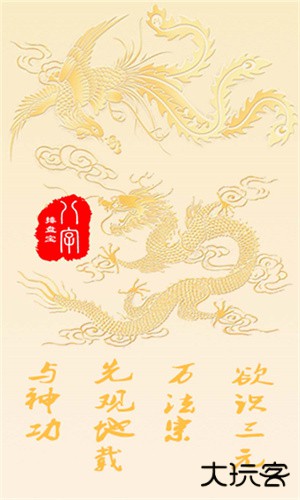 八字
排盘宝
欲识三元
万法宗
先观地载
与神功
大玩客